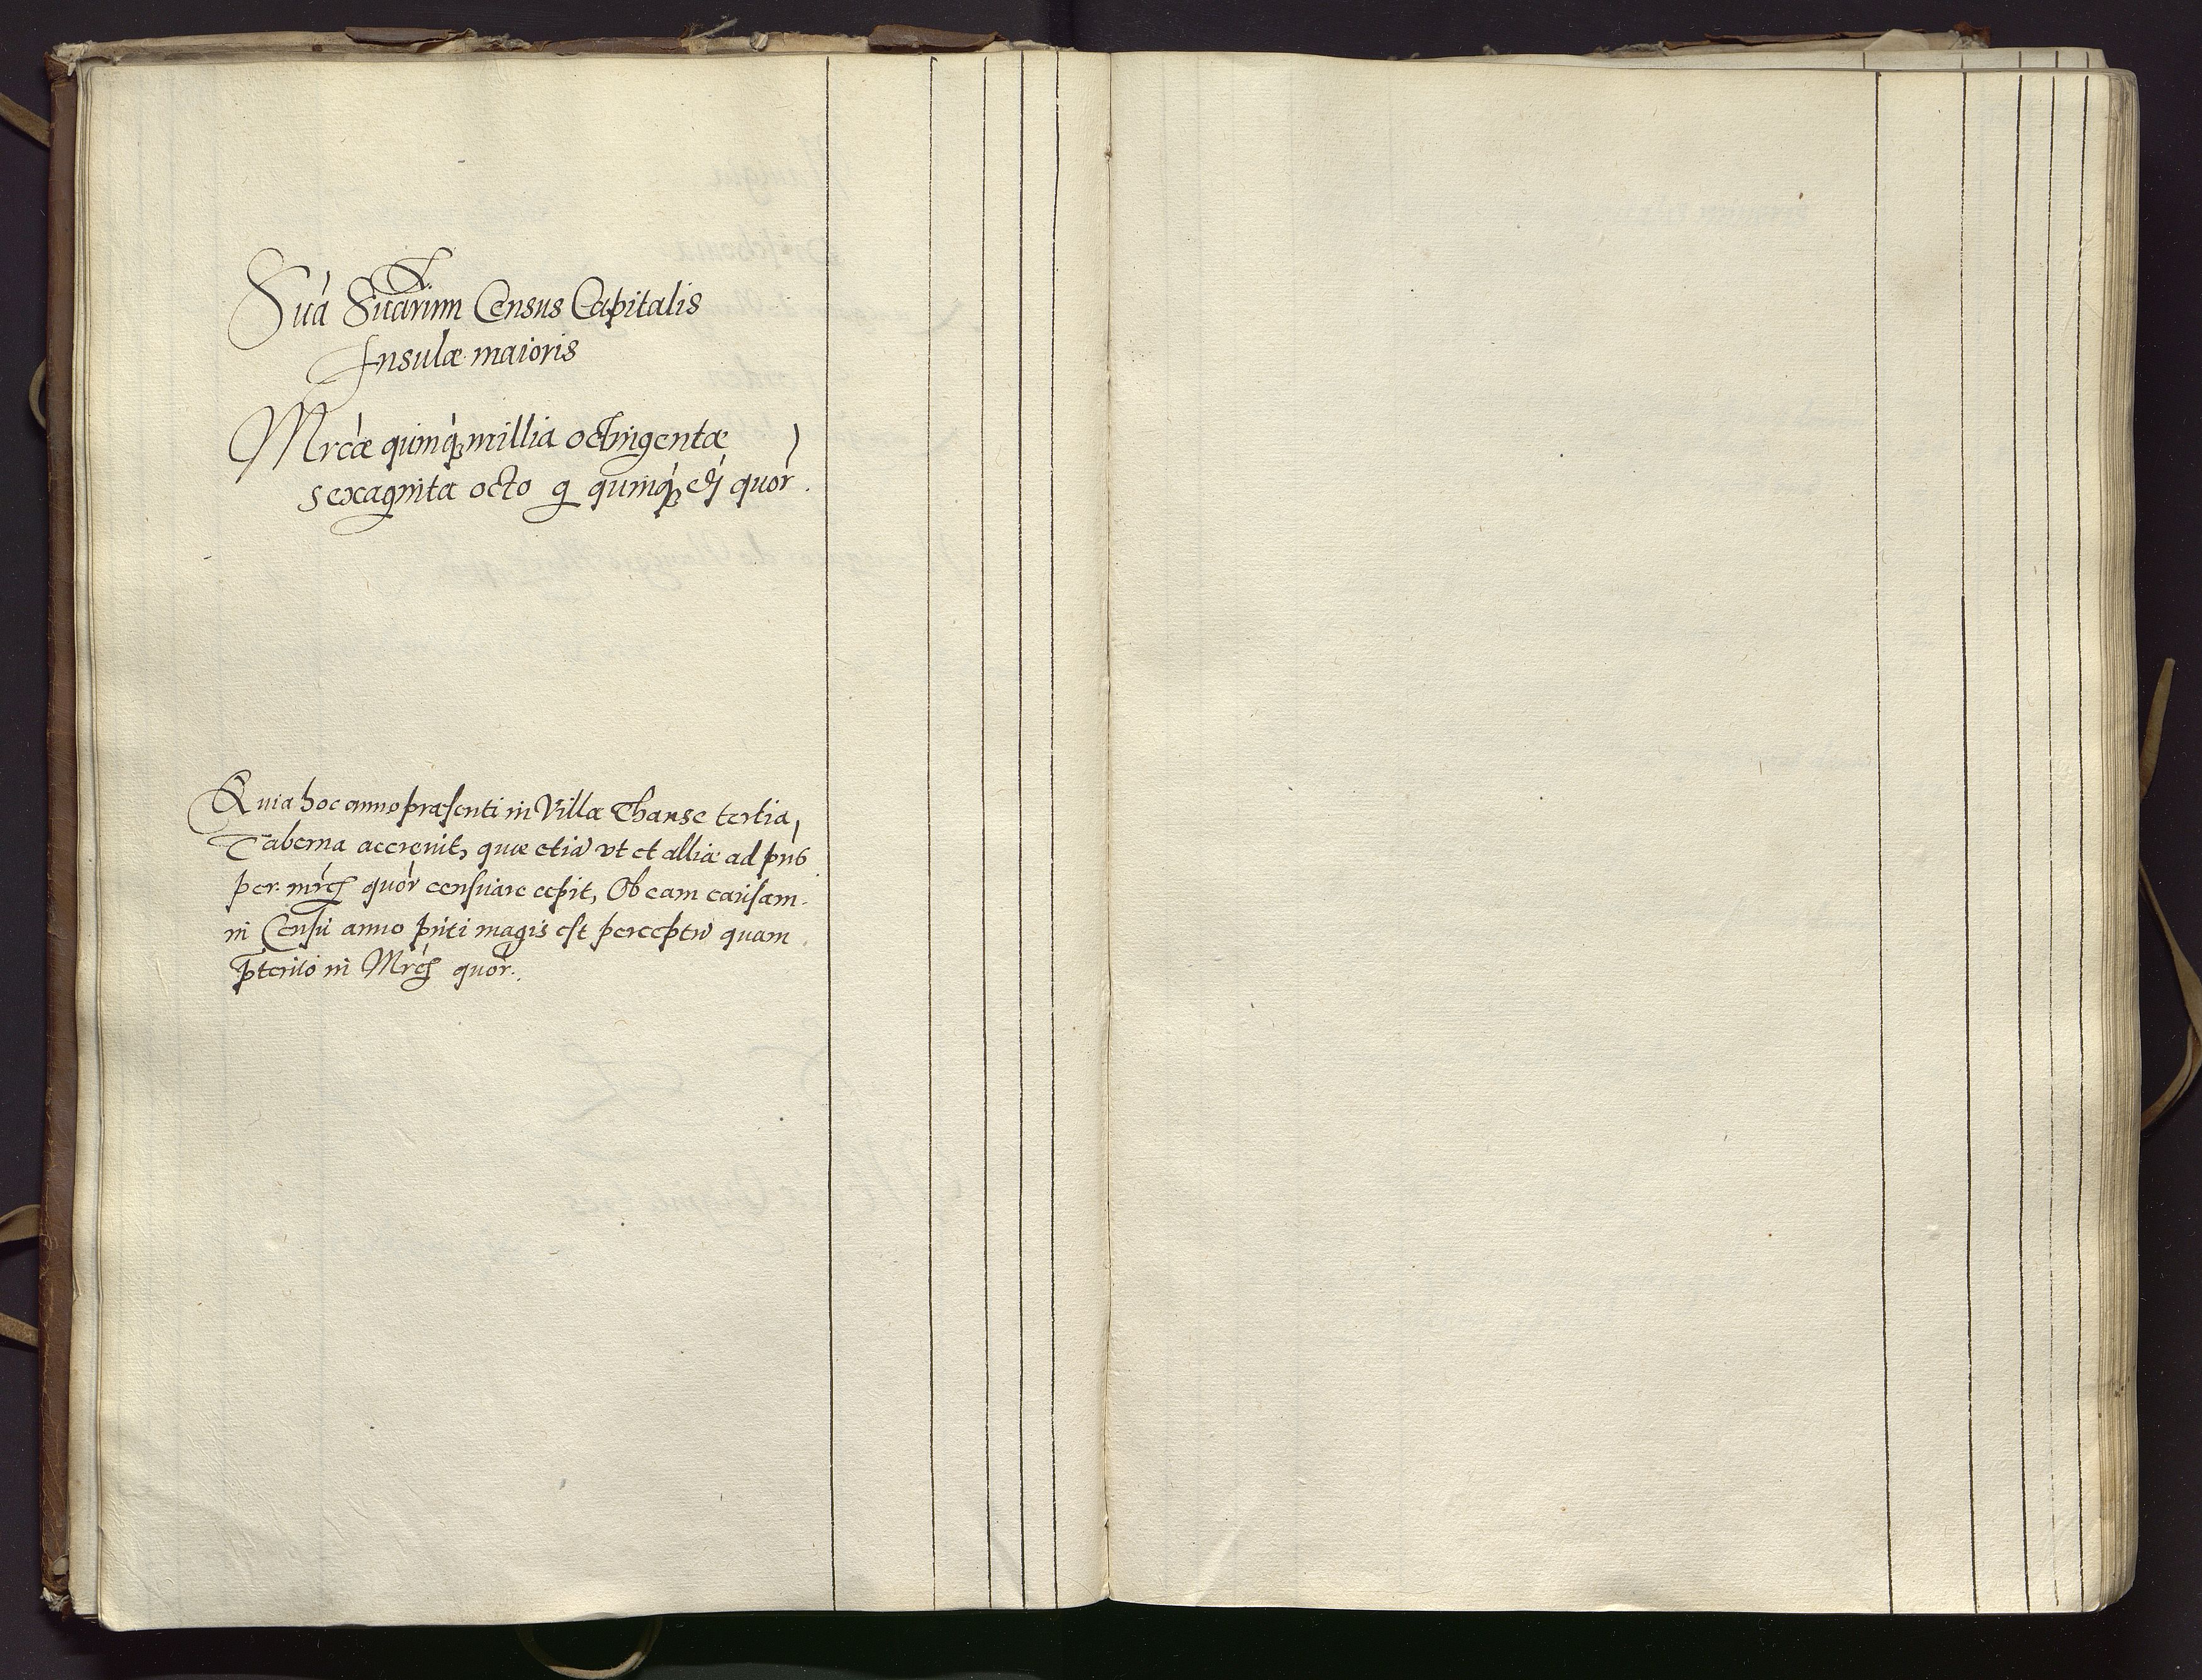 Suā Suārum Census Capitalis
Insulæ maioris
Mrcæ quinq millia octingentæ
sexaginta octo g quinq dj quor.
Quia hoc anno præsenti in Villa Thanse tertia
Taberna accrevit, quæ etiā vt et alliæ ad pns
per mrcs quor censuare cepit, Ob eam causam
in Censu anno pnti magis est perceptū quam
pterito in Mrcs quor.